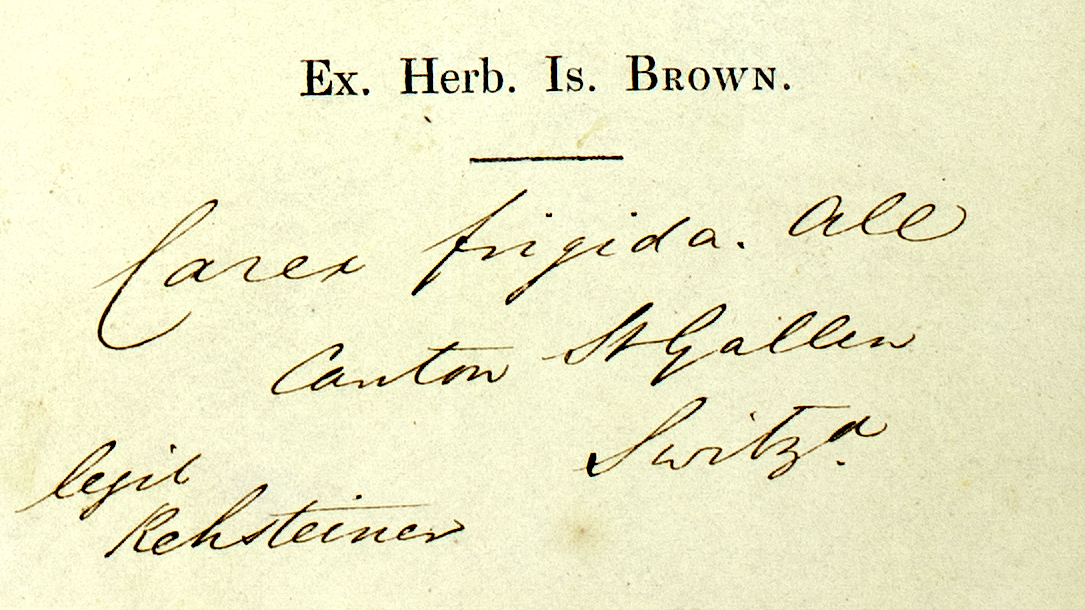 Ex. Herb. Is. Brown.
Carex frigida. All
Canton St Gallen
Switzd.
legit
Rehsteiner